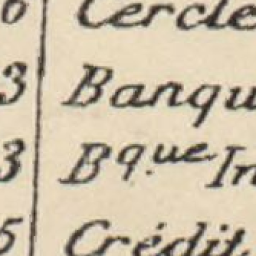 6 Cercle
3 Banqu
3 Bque In
5 Crédit